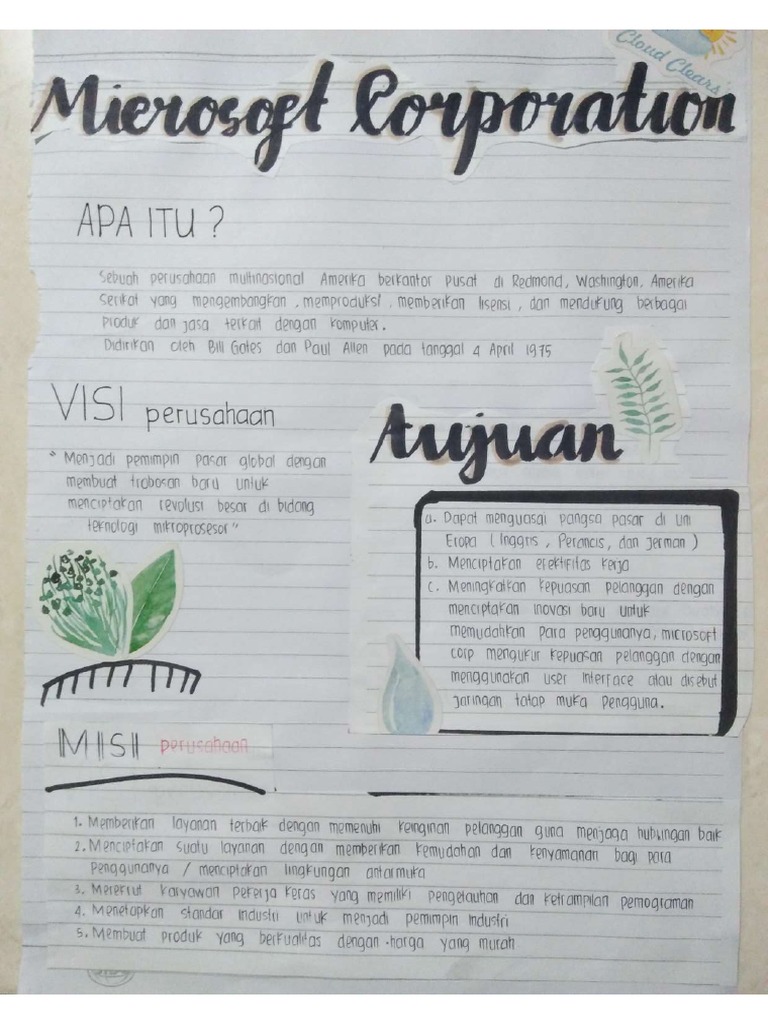 Cloud Clears
Microsoft Corporation
APA ITU ?
Sebuah perusahaan multinasional Amerika berkantor pusat di Redmond, Washington, Amerika
Serikat yang mengembangkan , memproduksi , memberikan lisensi , dan mendukung berbagai
produk dan jasa terkait dengan komputer.
Didirikan oleh Bill Gates dan Paul Allen pada tanggal 4 April 1975
VISI perusahaan
" Menjadi pemimpin pasar global dengan
membuat trobosan baru untuk
menciptakan revolusi besar di bidang
teknologi mikroprosesor "
Tujuan
a. Dapat menguasai pangsa pasar di Uni
Eropa ( Inggris , Perancis, dan Jerman )
b. Menciptakan efektifitas kerja
c. Meningkatkan kepuasan pelanggan dengan
menciptakan inovasi baru untuk
memudahkan para penggunanya, microsoft
corp mengukur kepuasan pelanggan dengan
menggunakan user interface atau disebut
jaringan tatap muka pengguna.
MISI perusahaan
1. Memberikan layanan terbaik dengan memenuhi keinginan pelanggan guna menjaga hubungan baik
2. Menciptakan suatu layanan dengan memberikan kemudahan dan kenyamanan bagi para
penggunanya / menciptakan lingkungan antarmuka
3. Merekrut karyawan pekerja keras yang memiliki pengetauhan dan ketrampilan pemograman
4. Menetapkan standar industri untuk menjadi pemimpin industri
5. Membuat produk yang berkualitas dengan harga yang murah